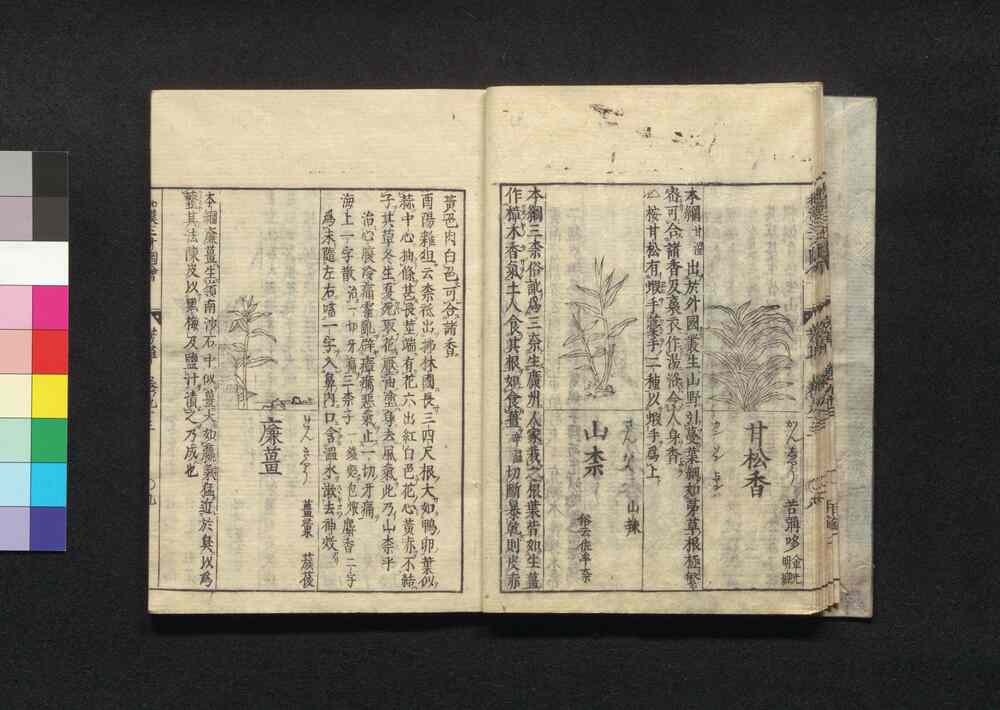 甘松香
かんせうかう
苦彌哆
金光明經
本綱甘松出於外國叢生山野引蔓葉細如茅草根極繁
密可合諸香及裛衣作湯浴令人身香
△按甘松有蝦手藁手二種以蝦手爲上
山柰
さんない
山辣
俗云
本綱三柰俗訛爲三奈生廣州人家栽之根葉皆如生薑
作樟木香氣土人食其根如食薑切斷暴乾則皮赤
黃色肉白色可合諸香
酉陽雜俎云柰祗出拂林國長三四尺根大如鴨卵葉似
蒜中心抽條甚長莖端有花六出紅白色花心黃赤不結
子其草冬生夏死取花壓油塗身去風氣此乃山柰乎
治心腹冷痛霍亂辟瘴癘惡氣止一切牙痛
海上一字散治一切牙痛三柰子麪包煨麝香一字
爲末隨左右㗜一字入鼻內口含溫水漱去神效
廉薑
れんきやう
薑彙
蔟葰
本綱廉薑生嶺南沙石中似薑大如臝氣猛近於臭以爲
虀其法陳皮以黑梅及鹽汁漬之乃成也